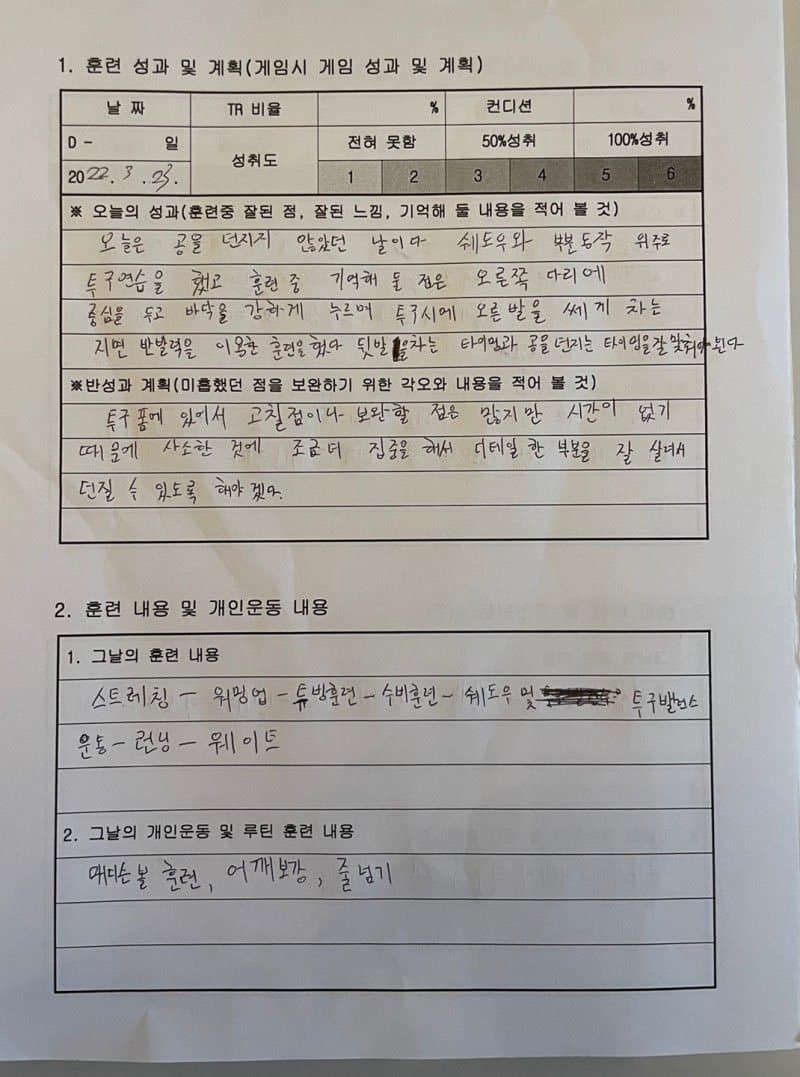 1. 훈련 성과 및 계획(게임시 게임 성과 및 계획)
날 짜 TR 비율 % 컨디션 %
D - 일 성취도 전혀 못함 50%성취 100%성취
2022. 3. 23. 1 2 3 4 5 6
※ 오늘의 성과(훈련중 잘된 점, 잘된 느낌, 기억해 둘 내용을 적어 볼 것)
오늘은 공을 던지지 않았던 날이다 쉐도우와 부분동작 위주로
투구연습을 했고 훈련중 기억해 둘 점은 오른쪽 다리에
중심을 두고 바닥을 강하게 누르며 투구시에 오른발을 쎄게 차는
지면 반발력을 이용한 훈련을 했다 뒷발을 차는 타이밍과 공을 던지는 타이밍을 잘 맞춰야 된다
※반성과 계획(미흡했던 점을 보완하기 위한 각오와 내용을 적어 볼 것)
투구폼에 있어서 고칠점이나 보완할 점은 많지만 시간이 없기
때문에 사소한 것에 조금더 집중을 해서 디테일한 부분을 잘 살려서
던질 수 있도록 해야겠다.
2. 훈련 내용 및 개인운동 내용
1. 그날의 훈련 내용
스트레칭 - 워밍업 - 투방훈련 - 수비훈련 - 쉐도우 및 투구밸런스
운동 - 런닝 - 웨이트
2. 그날의 개인운동 및 루틴 훈련 내용
메디슨볼 훈련, 어깨보강, 줄넘기